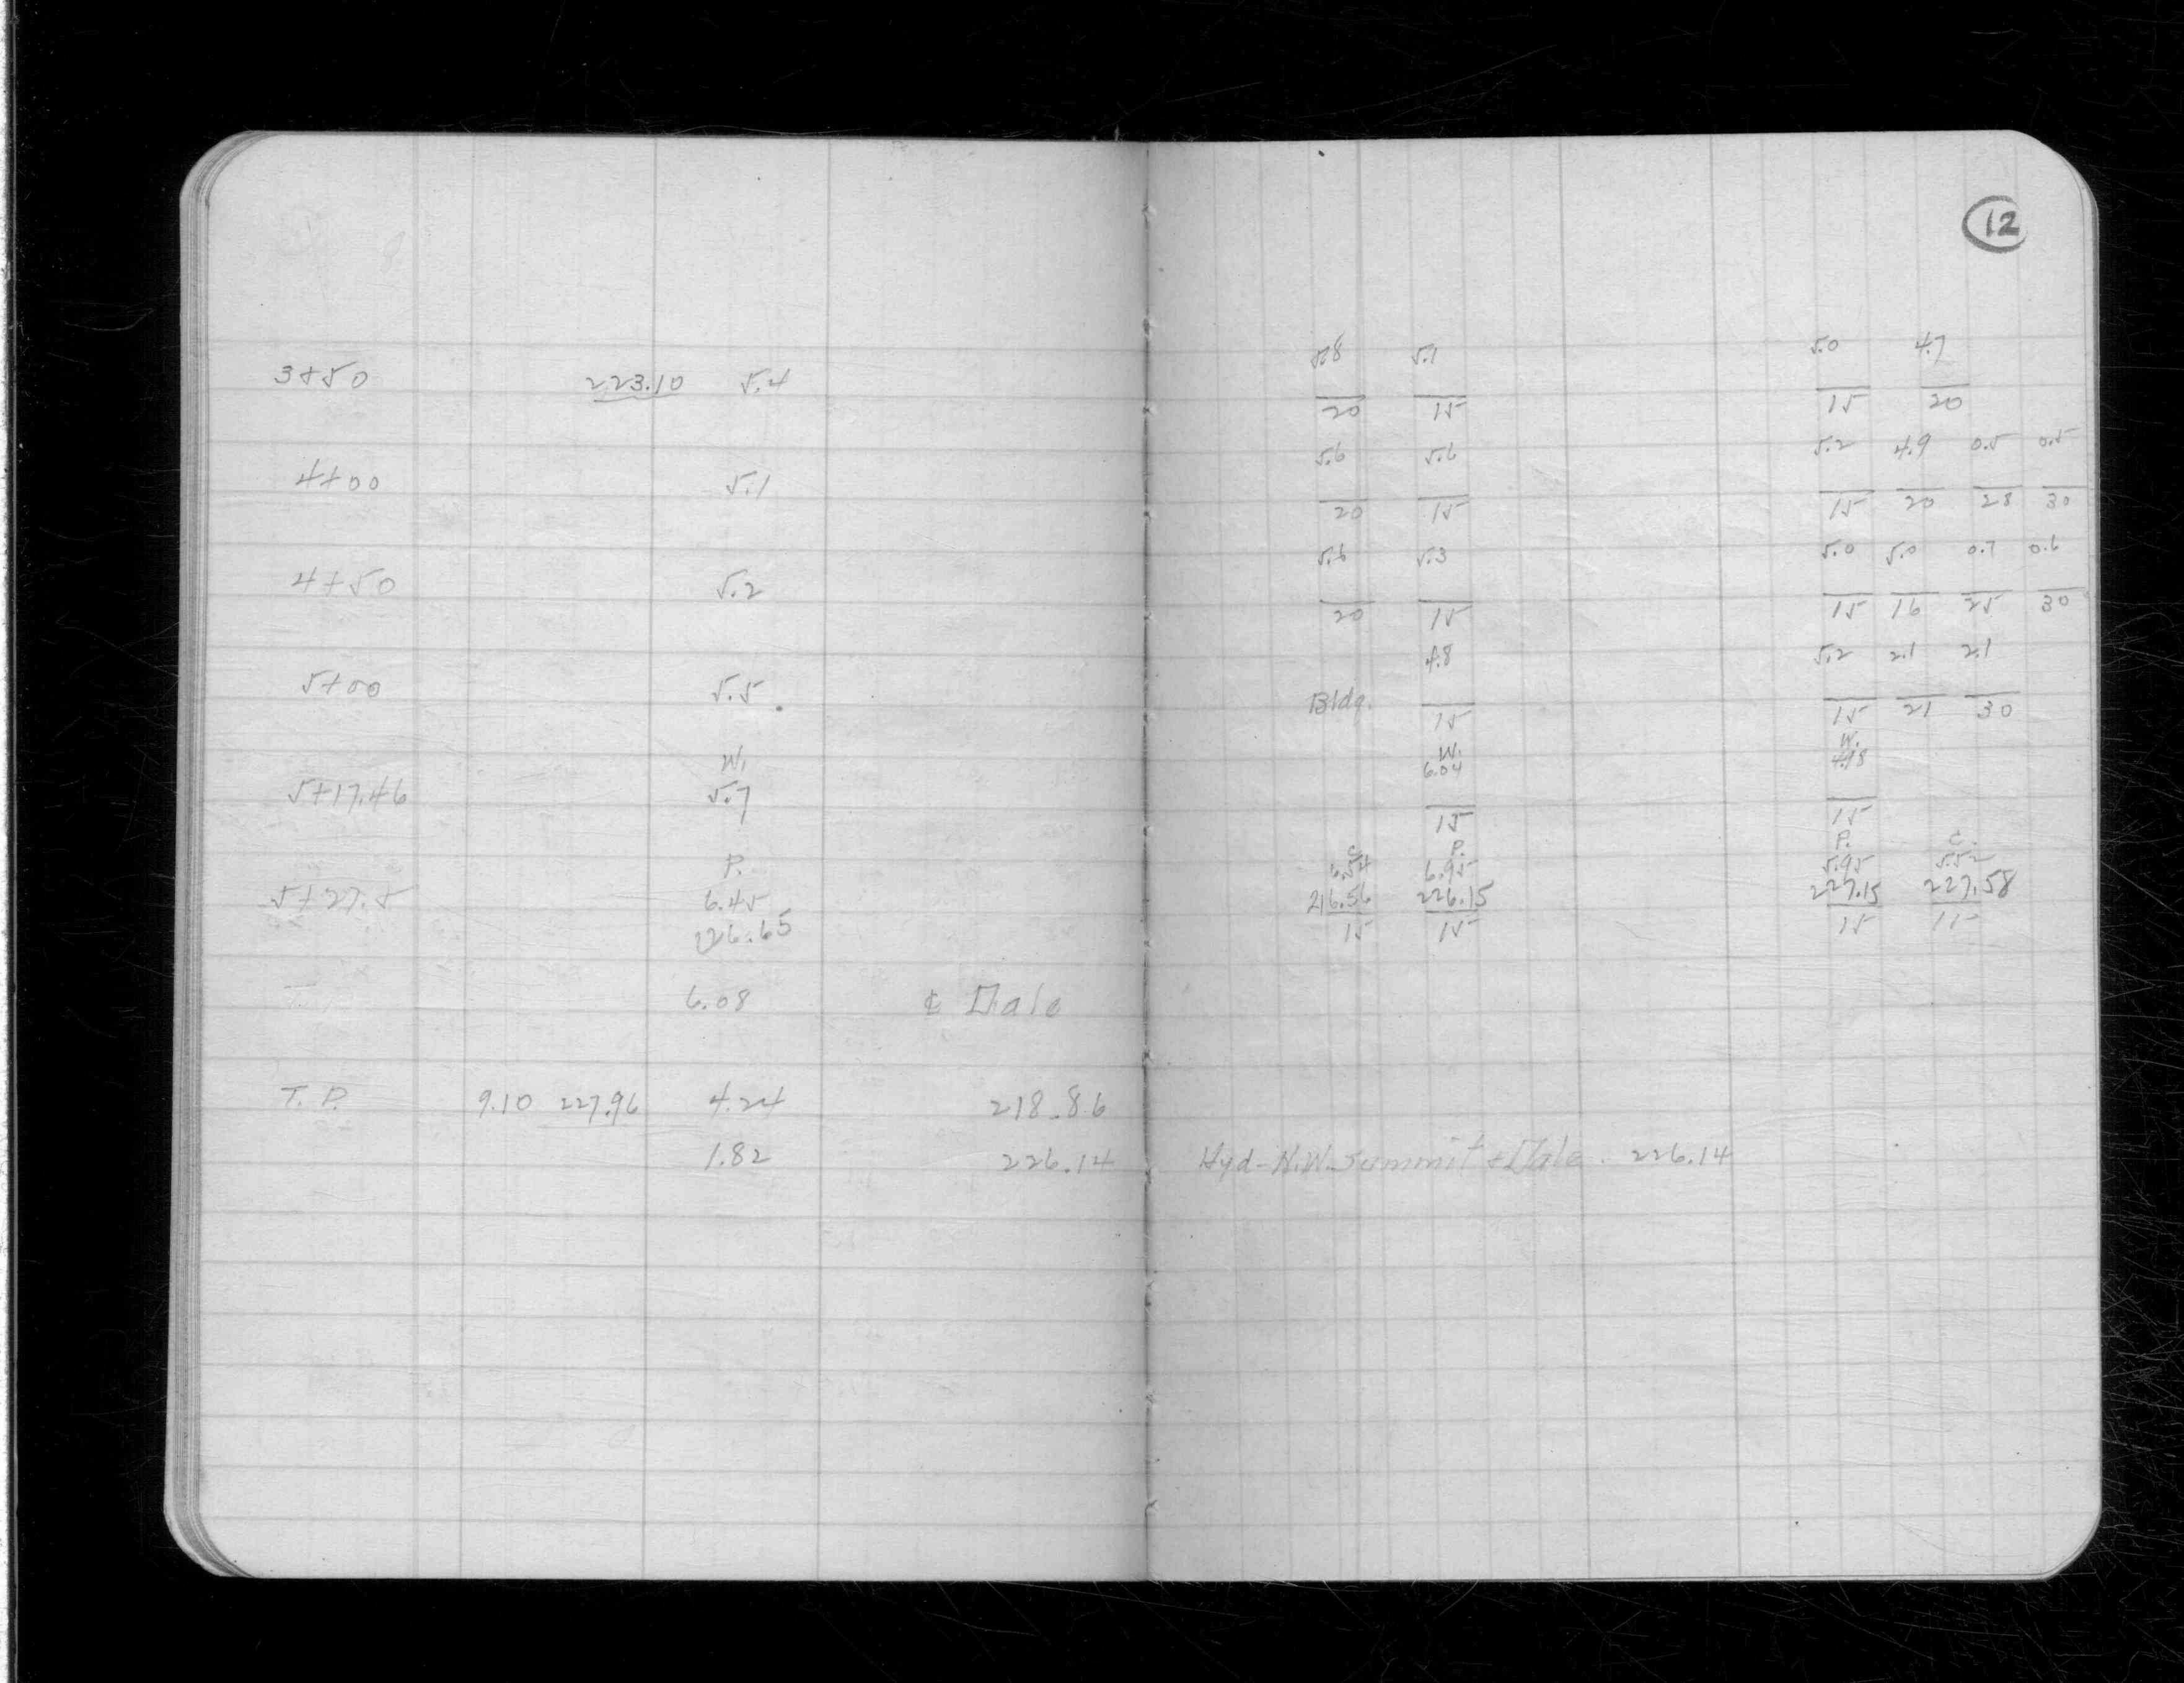 12
5.8 5.1 5.0 4.7
3+50 223.10 5.4
20 15 15 20
5.6 5.6 5.2 4.9 0.5 0.5
4+00 5.1
20 15 15 20 28 30
5.6 5.3 5.0 5.0 0.7 0.6
4+50 5.2
20 15 15 16 25 30
4.8 5.2 2.1 2.1
5+00 5.5 Bldg.
15 15 21 30
W. W. W.
6.04
5+17.46 5.7
15 15
P. C. P. P. C.
6.54 6.95 5.95 5.52
5+27.5 6.45 216.56 226.15 227.15 227.58
226.65 15 15 15
6.08 ℄ Dale
T. P. 9.10 227.96 4.24 218.86
1.82 226.14 Hyd-N.W. Summit + Dale. 226.14